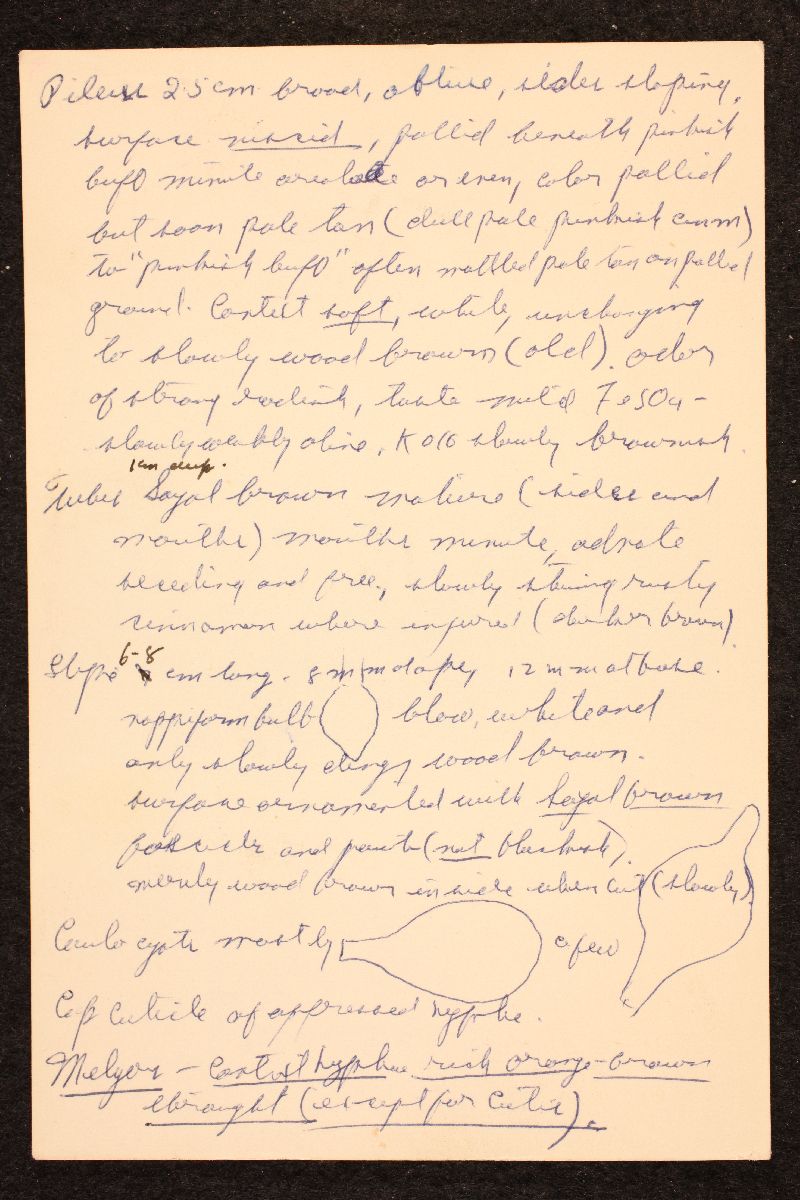 Pileus 2.5 cm broad, obtuse, sides sloping,
surface viscid, pallid beneath pinkish
buff minute areolate or even, color pallid
but soon pale tan (dull pale pinkish cinn)
to "pinkish buff" often mottled pale tan on pallid
ground. Context soft, white, unchanging
to slowly wood brown (old). odor
of strong radish, taste mild FeSO4 -
slowly weakly olive, KOH slowly brownish.
1 cm deep.
Tubes Sayal brown mature (sides and
mouths) mouths minute, adnate
seceding and free, slowly staining rusty
cinnamon where injured (darker brown)
Stipe 6-8 cm long. 8 mm at apex, 12 mm at base.
napiform bulb below, white and
only slowly dingy wood brown.
surface ornamented with Sayal brown
and points (not blackish),
merely wood brown inside when cut (slowly)
Caulocysts mostly a few
Cap cuticle of appressed hyphae.
Melzers - Context hyphae rich orange-brown
throughout (except for cutis).